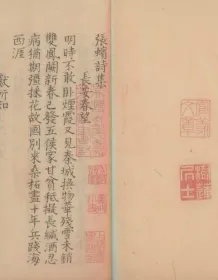 張蠙詩集
長安春望
明時不敢臥煙霞又見秦城換物華殘雪未銷
雙鳳闕新春已發五侯家甘貧秪擬長緘酒忍
病猶期強採花故國別來桑柘盡十年兵踐海
西涯
獻所知